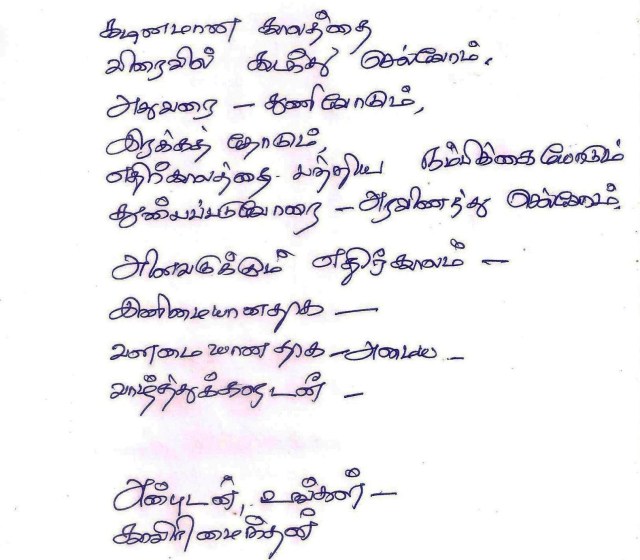 கடினமான காலத்தை
விரைவில் கடந்து செல்வோம்.
அதுவரை – துணிவோடும்,
இரக்கத் தோடும்,
எதிர்காலத்தை பற்றிய நம்பிக்கையோடும்
துயரப்படுவோரை – அரவணைத்து செல்வோம்.
அனைவருக்கும் எதிர்காலம் –
இனிமையானதாக –
வளமையானதாக – அமைய –
வாழ்த்துக்களுடன் –
அன்புடன், உங்கள் –
காவிரிமைந்தன்